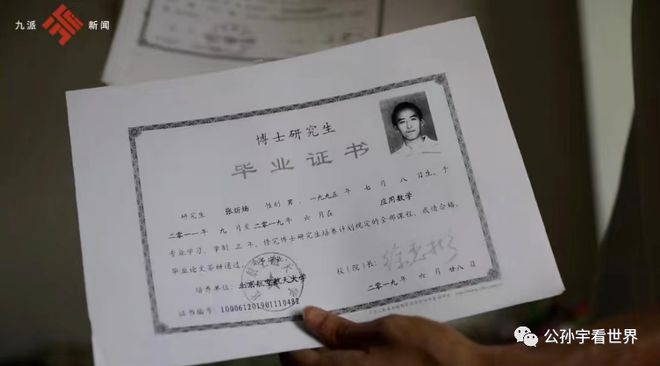 九派
新闻
博士研究生
毕业证书
研究生 张炘炀 性别 男，一九九五年 七月 八日生，于
二〇一一年 九月至二〇一九年 六月在 应用数学
专业学习，学制 三 年，修完博士研究生培养计划规定的全部课程，成绩合格，
毕业论文答辩通过。
培养单位：北京航空航天大学
校（院）长：
证书编号：100061201901110482
二〇一九年 六月 廿八日
公孙宇看世界